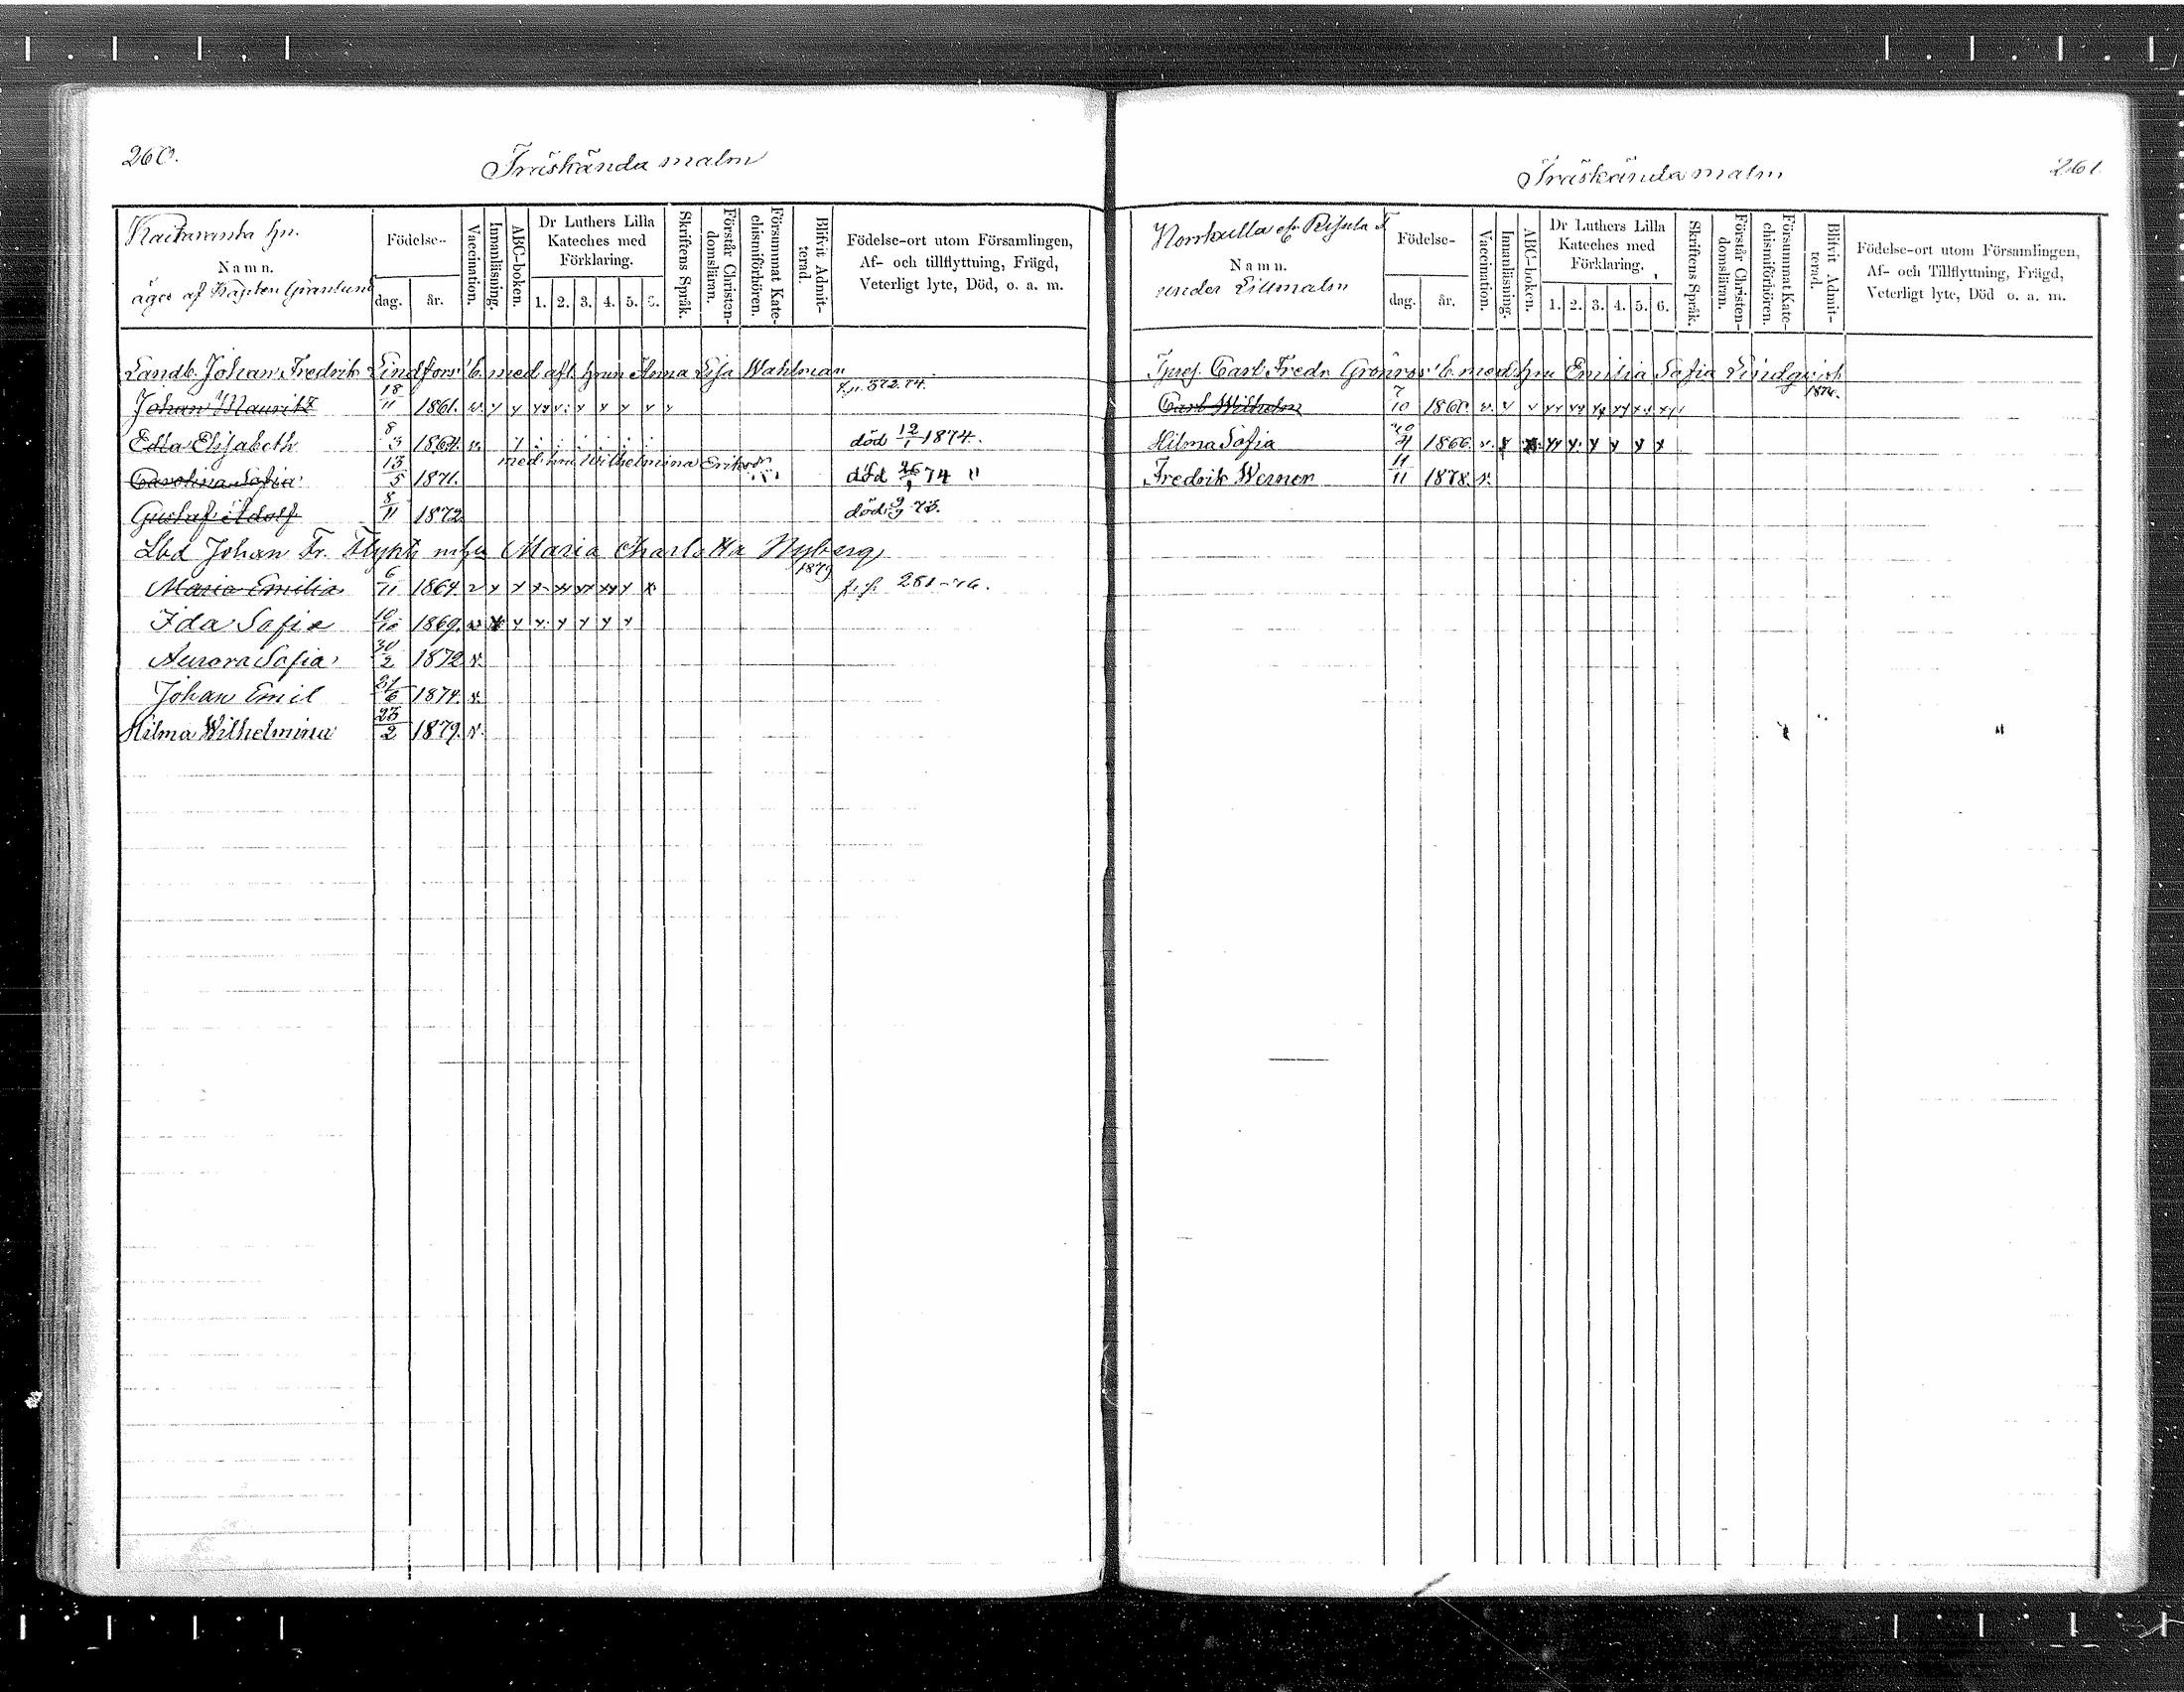 260.
Träskända malm
hn.
Namn.
äges af Kapten Granlund
Födelse-
dag.
år.
Vaccination.
Innanläsning.
ABC-boken.
Dr Luthers Lilla
Kateches med
Förklaring.
1. 2. 3. 4. 5. 6.
Skriftens Språk.
Förstår Christen-
domsläran.
Försummat Kate-
chismiförhören.
Blifvit Admit-
terad.
Födelse-ort utom Församlingen,
Af- och tillflyttning, Frägd,
Veterligt lyte, Död, o. a. m.
Landb. Johan Fredrik Lindfors' b. med afl. hrun Anna Lisa Wahlman
Johan Mauritz 18/11 1861. v. x x xx x: x x x x x
Edla Elisabeth 8/3 1864. v. död 12/1 1874.
med hru Wilhelmina
Carolina Sofia 13/5 1871. död 26/1 74 "
Gustaf Adolf 8/11 1872 död
Lbd Johan Fr. Maria Charlotta Nyberg
1879
Maria Emilia 6/11 1864 v x x x xx xx xx x x 281-76.
Ida Sofia 10/10 1869. v x x x x x x x
Aurora Sofia 30/2 1872 v.
Johan Emil 21/6 1874. v.
Hilma Wilhelmina 23/2 1879. v.
Träskända malm
261
Norrkulla
Namn.
under Lillmalm
Födelse-
dag.
år.
Vaccination.
Innanläsning.
ABC-boken.
Dr Luthers Lilla
Kateches med
Förklaring.
1. 2. 3. 4. 5. 6.
Skriftens Språk.
Förstår Christen-
domsläran.
Försummat Kate-
chismiförhören.
Blifvit Admit-
terad.
Födelse-ort utom Församlingen,
Af- och Tillflyttning, Frägd,
Veterligt lyte, Död o. a. m.
Carl Fredr Grönros' b. med hru Emilia Sofia Lindqvist
Carl Wilhelm 7/10 1860. v. x x xx xx xx xx xx xx
Hilma Sofia 1866. v. x x. xx x. x x x x
Fredrik Werner 11/11 1878. v.